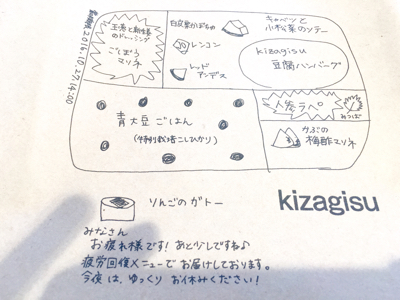 2016.10.27 14:00
玉ねぎと新生姜
のドレッシング
ごぼう
マリネ
白皮栗かぼちゃ
レンコン
レッド
アンデス
キャベツと
小松菜のソテー
kizagisu
豆腐ハンバーグ
青大豆ごはん
(特別栽培こしひかり)
人参ラペ
みつば
かぶの
梅酢マリネ
りんごのガトー
kizagisu
みなさん
お疲れ様です! あと少しですね♪
疲労回復メニューでお届けしております。
今夜は、ゆっくりお休みください!